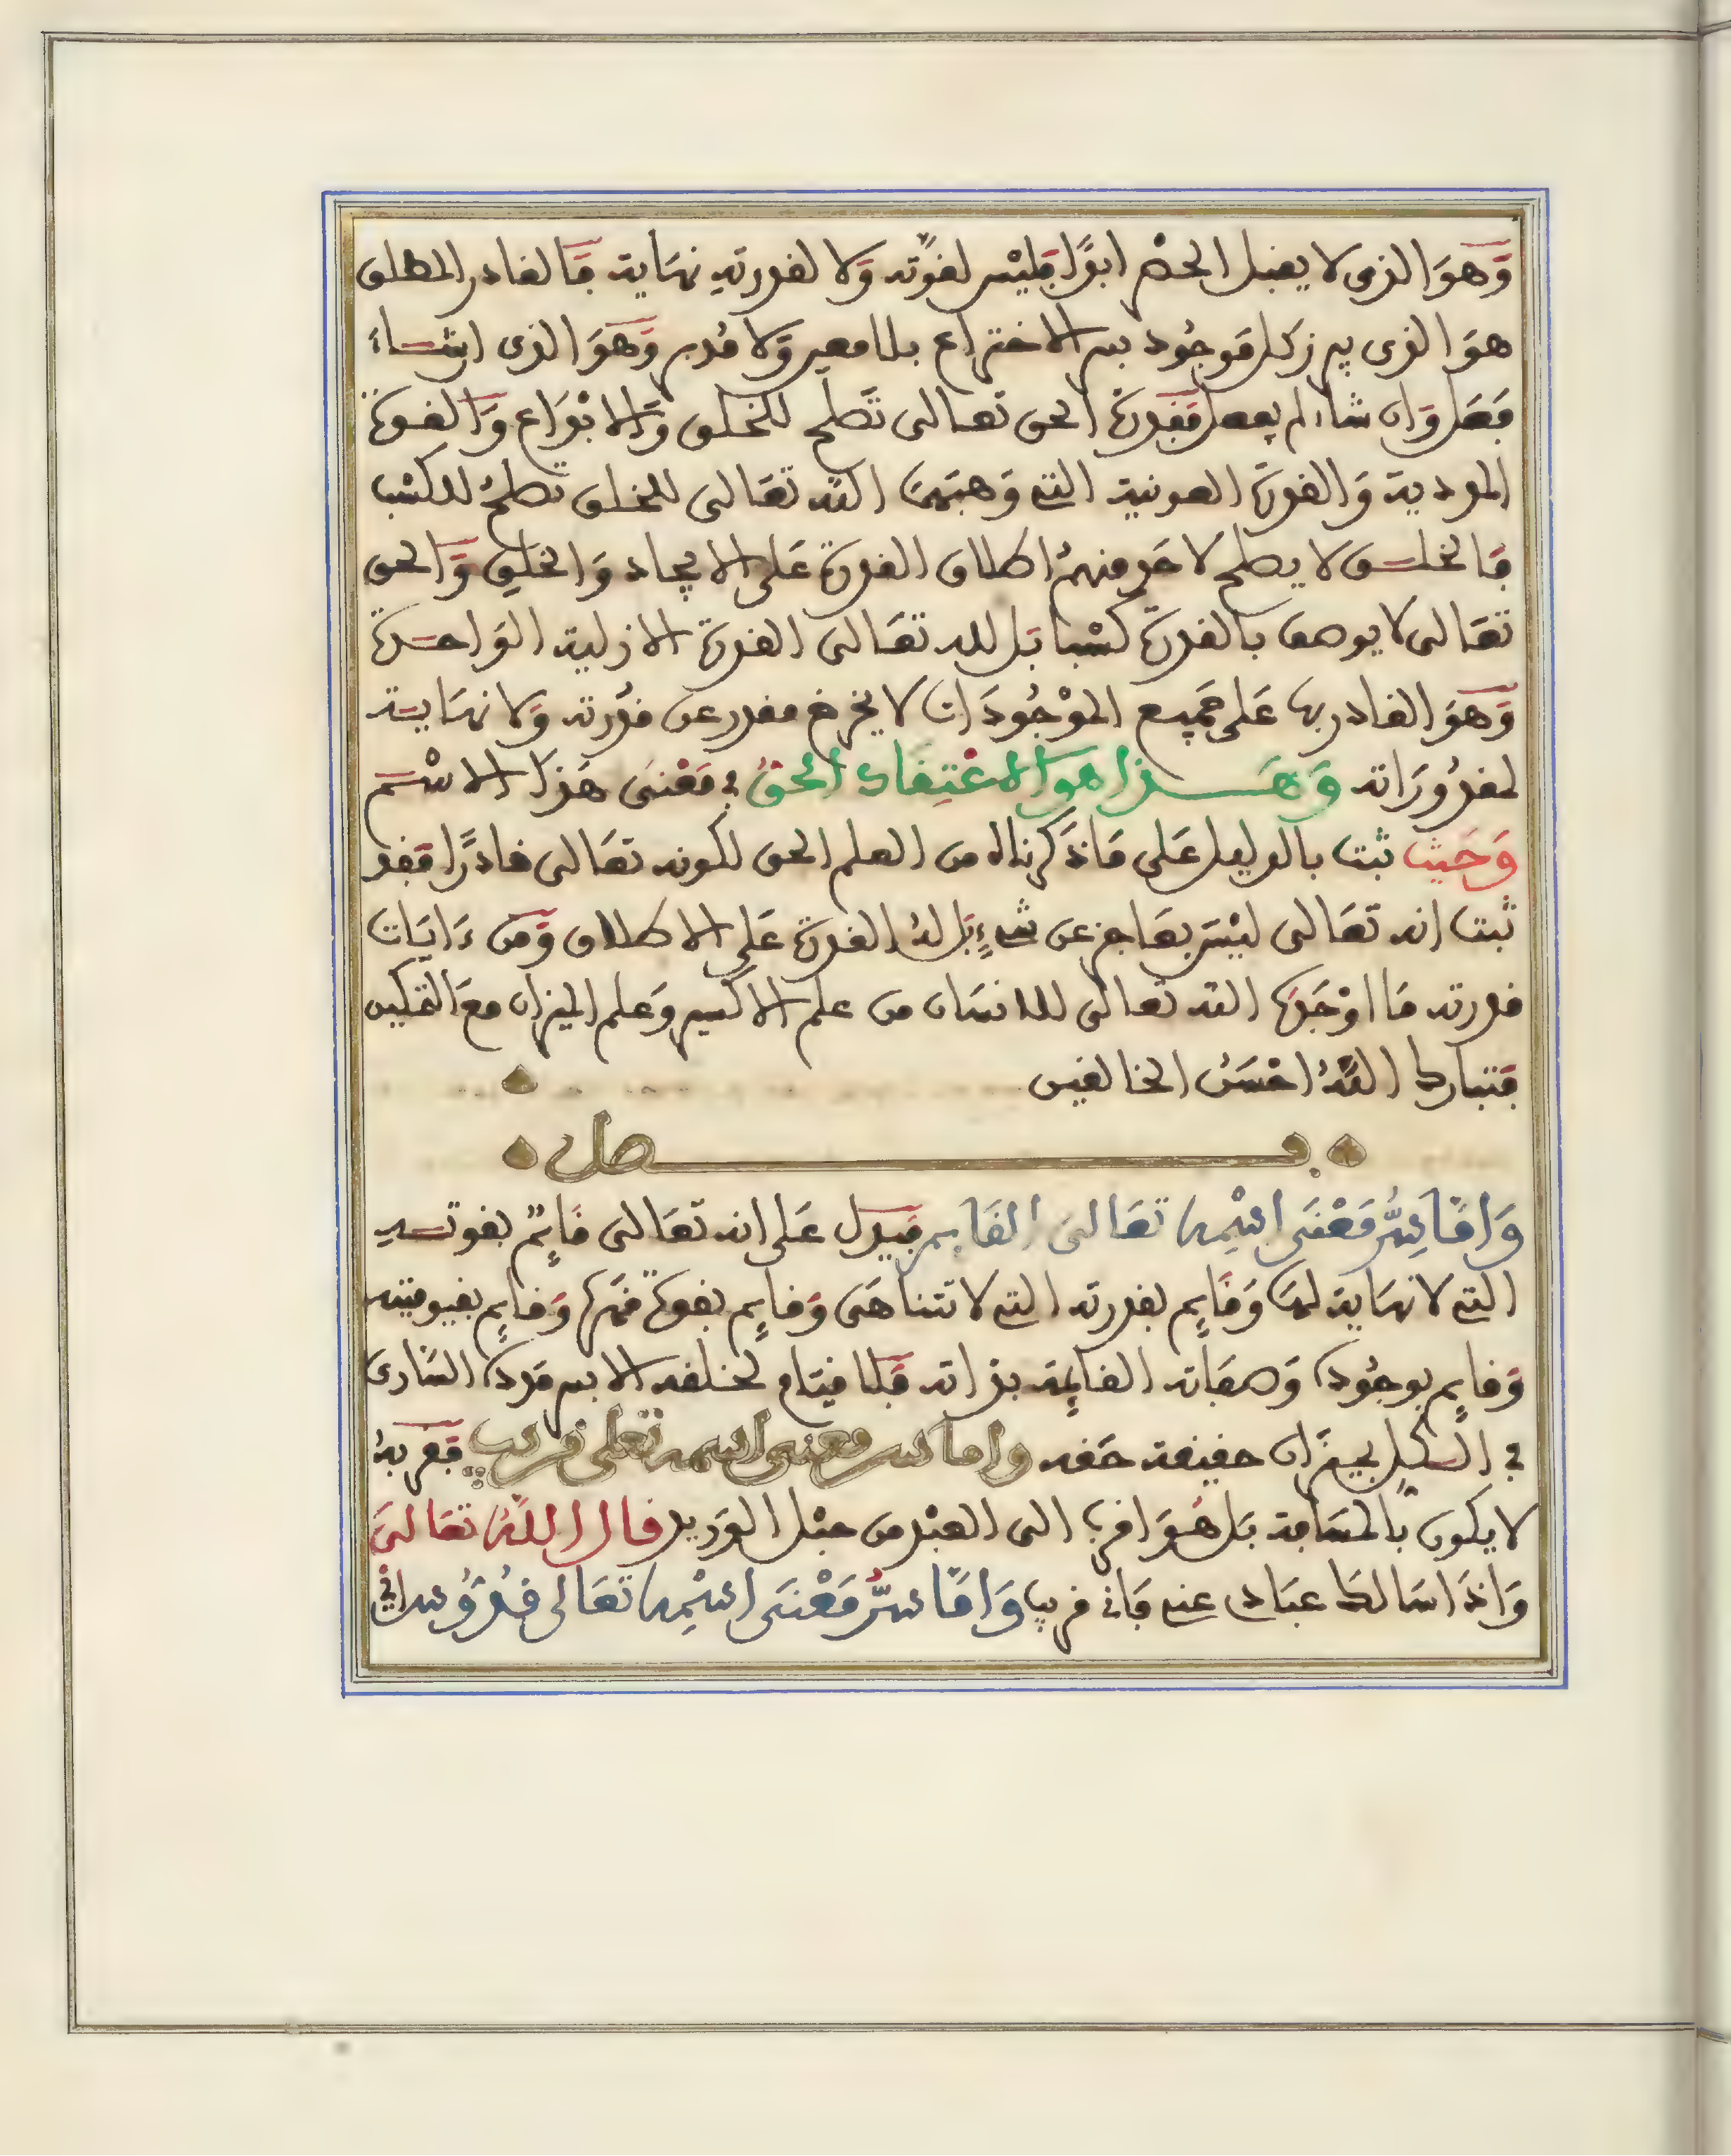 وَهوَ الذى لا يقبل الحصر ابدًا فليس لقوّته وَلا لقدرتهِ نهَاية فَالقادر المطلق
هوَ الذى يبرز كل موجُود بسر الاختراع بلا معين وَلا مُدبر وَهوَ الذى ان شَاءَ
فعَل وَان شاء لم يفعل فقدرة الحق تعالى تصلح للخلق وَالابْدَاع وَالقوة
الموديَة وَالقوة العونية التى وَهبَها الله تعَالى للخلق تصلحُ للكسْب
فَالخلق لا يصلح لاحَدٍ منهمُ اطلاق القدرة عَلى الايجاد وَالخلقِ وَالحق
تعَالى لا يوصف بالقدرة كسْبا بَل لله تعَالى القدرة الازلية الوَاحدة
وَهوَ القادر بها عَلى جميع الموْجُودَات لا يخرج مقدر عن قدْرته وَلا نهَاية
لمقدُورَاته وَهَذا هو الاعْتِقَاد الحقُ فى مَعْنىَ هَذا الاسْم
وَحَيث ثبت بالدليل عَلى مَا ذكرناه من العلم الحق لكونه تعَالى قادرًا فقد
ثبت انه تعَالى ليْسَ بعَاجز عن شىءٍ بَل لهُ القدرة عَلى الاطلاق وَمن ءَايَات
قدرته مَا اوْجَدَهَا الله تعالى للانسَان من علم الاكسير وَعلم الميزان معَ التمكين
فتبارك اللهُ احْسَنُ الخالقين
فصل
وَامَّا سِرُّ مَعْنىَ اسْمِه تعَالىَ القَايم فيدل عَلى انه تعَالى قَايمٌ بقوته
التى لا نهَاية لهَا وَقَايم بقدرته التى لا تتناهَى وَقايم بقوة قهرهَا وَقايم بقيوميته
وَقايم بوجُوده وَصفاته القايمة بذاته فَلا قيَام لخلقه الا بسر مَدده السَارى
فى الكل بميزان حقيقة حقه واما سر معنى اسمه تعلى قريب فقربهُ
لا يكون بالمسَافة بَل هُوَ اقرب الى العبْد من حبْل الوَريد قال اللهُ تعَالىَ
وَاذَا سَالك عبَادى عنى فَانى قريب وَامَّا سرُّ مَعْنىَ اسْمِه تعَالى قُدُّوُس اى